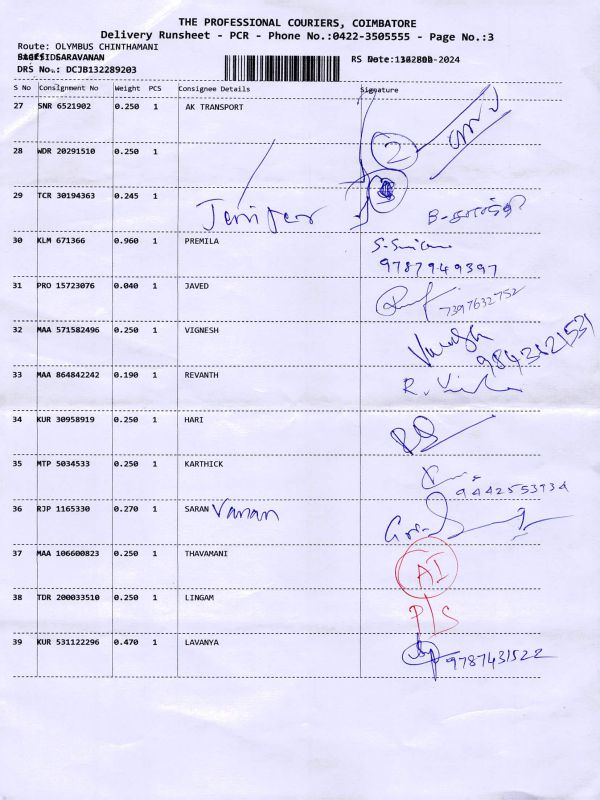 THE PROFESSIONAL COURIERS, COIMBATORE
Delivery Runsheet - PCR - Phone No.:0422-3505555 - Page No.:3
Route: OLYMBUS CHINTHAMANI
SARAVANAN
RS Date: -2024
DRS No.: DCJB132289203
S No Consignment No Weight PCS Consignee Details Signature
27 SNR 6521902 0.250 1 AK TRANSPORT
28 WDR 20291510 0.250 1 2
29 TCR 30194363 0.245 1 Jenifer
30 KLM 671366 0.960 1 PREMILA
9787949397
31 PRO 15723076 0.040 1 JAVED 7397632752
32 MAA 571582496 0.250 1 VIGNESH
33 MAA 864842242 0.190 1 REVANTH
34 KUR 30958919 0.250 1 HARI
35 MTP 5034533 0.250 1 KARTHICK
9442553734
36 RJP 1165330 0.270 1 SARAN Vanan
37 MAA 106600823 0.250 1 THAVAMANI AI
38 TDR 200033510 0.250 1 LINGAM P/S
39 KUR 531122296 0.470 1 LAVANYA 9787431522